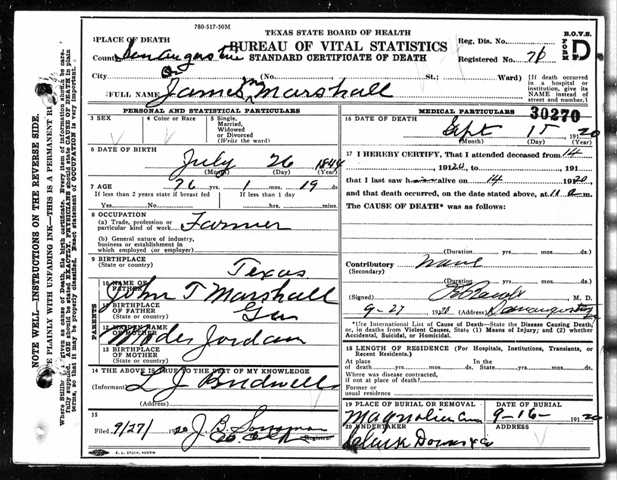 780-517-50M
TEXAS STATE BOARD OF HEALTH
BUREAU OF VITAL STATISTICS
STANDARD CERTIFICATE OF DEATH
B.O.V.S.
FORM D
Reg. Dis. No.
Registered No. 76
1 PLACE OF DEATH
County San Augustine
City No. St.: Ward)
[If death occurred in a hospital or institution, give its NAME instead of street and number.]
2 FULL NAME James M Marshall
PERSONAL AND STATISTICAL PARTICULARS
3 SEX
4 Color or Race
5 Single, Married, Widowed or Divorced (Write the word)
6 DATE OF BIRTH
July 26 1844
(Month) (Day) (Year)
7 AGE 76 yrs. 1 mos. 19 ds.
If less than 2 years state if breast fed If less than 1 day
Yes No hrs. mins.
8 OCCUPATION
(a) Trade, profession or particular kind of work Farmer
(b) General nature of industry, business or establishment in which employed (or employer)
9 BIRTHPLACE
(State or country) Texas
PARENTS
10 NAME OF FATHER John T Marshall
11 BIRTHPLACE OF FATHER
(State or country)
12 MAIDEN NAME OF MOTHER Jordan
13 BIRTHPLACE OF MOTHER
(State or country)
14 THE ABOVE IS TRUE TO THE BEST OF MY KNOWLEDGE
(Informant) L J Bridwell
(Address)
15
Filed 9/27/ 1920 J. B.
Registrar
MEDICAL PARTICULARS
30270
16 DATE OF DEATH
Sept 15 1920
(Month) (Day) (Year)
17 I HEREBY CERTIFY, That I attended deceased from 14
, 1920, to , 191
that I last saw h alive on 14 1920
and that death occurred, on the date stated above, at 11 m.
The CAUSE OF DEATH* was as follows:
(Duration yrs. mos. ds.
Contributory none
(Secondary)
(Duration yrs. mos. ds.
(Signed) M. D.
9-27 (Address) San Augustine
*Use International List of Cause of Death—State the Disease Causing Death, or, in deaths from Violent Causes, State (1) Means of Injury; and (2) whether Accidental, Suicidal, or Homicidal.
18 LENGTH OF RESIDENCE (For Hospitals, Institutions, Transients, or Recent Residents.)
At place In the
of death yrs. mos. ds. State yrs. mos. ds.
Where was disease contracted,
if not at place of death?
Former or
usual residence
19 PLACE OF BURIAL OR REMOVAL DATE OF BURIAL
Magnolia Cem 9-16- 1920
20 UNDERTAKER ADDRESS
Clark Downs & Co
NOTE WELL—INSTRUCTIONS ON THE REVERSE SIDE.